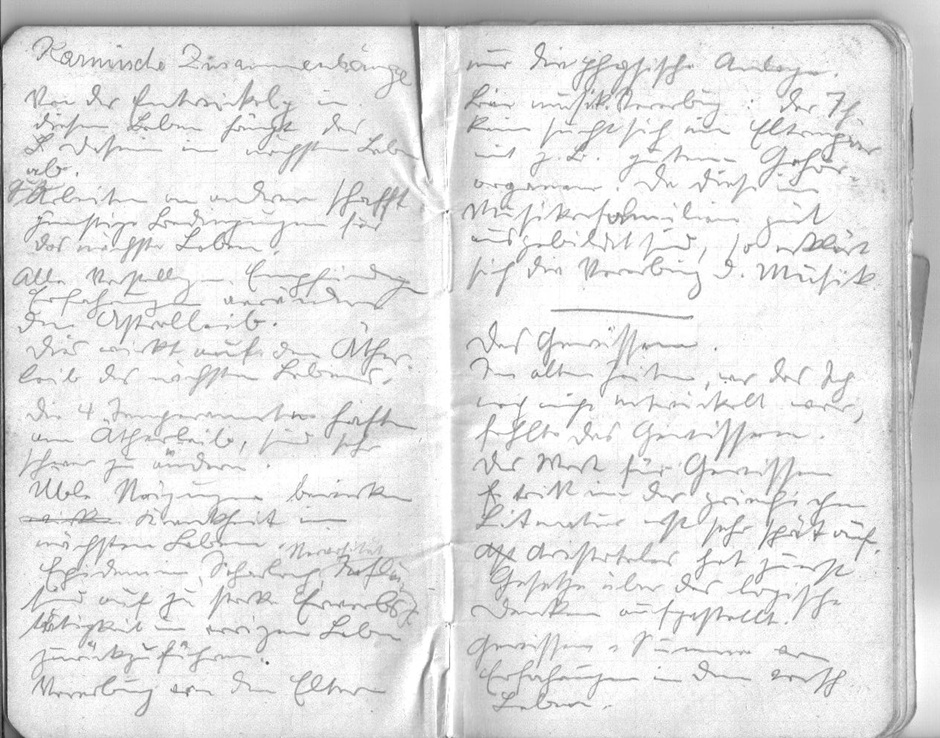 Karmische Zusammenhänge
Von der Entwickelg in
diesem Leben hängt das
Dasein im nächsten Leben
ab.
Arbeiten an andern schafft
günstige Bedingungen für
das nächste Leben
Alle Vorstellgn. Empfindg
Erfahrungen verändern
den Astralleib.
Dies wirkt auf den Äther
leib des nächsten Lebens.
Die 4 Temperamente haften
am Ätherleib, sind sehr
schwer zu ändern.
Üble Neigungen bewirken
Krankheit im
nächsten Leben. Nervosität
Epidemien, Scharlach,
sind auf zu starke Erwerbs
tätigkeit im vorigen Leben
zurückzuführen.
Vererbung von den Eltern
nur die physische Anlage.
Keine musik. Vererbung: der Ich
keim sucht sich ein Elternpaar
mit z.B. gutem Gehör-
organen. Da diese in
Musikerfamilien gut
ausgebildet sind, so erklärt
sich die Vererbung d. Musik.
Das Gewissen.
In alten Zeiten, wo das Ich
noch nicht entwickelt war,
fehlte das Gewissen.
Das Wort für Gewissen
tritt in der griechischen
Literatur erst sehr spät auf.
Aristoteles hat zuerst
Gesetze über das logische
Denken aufgestellt.
Gewissen = Summe von
Erfahrungen in den versch
Leben.